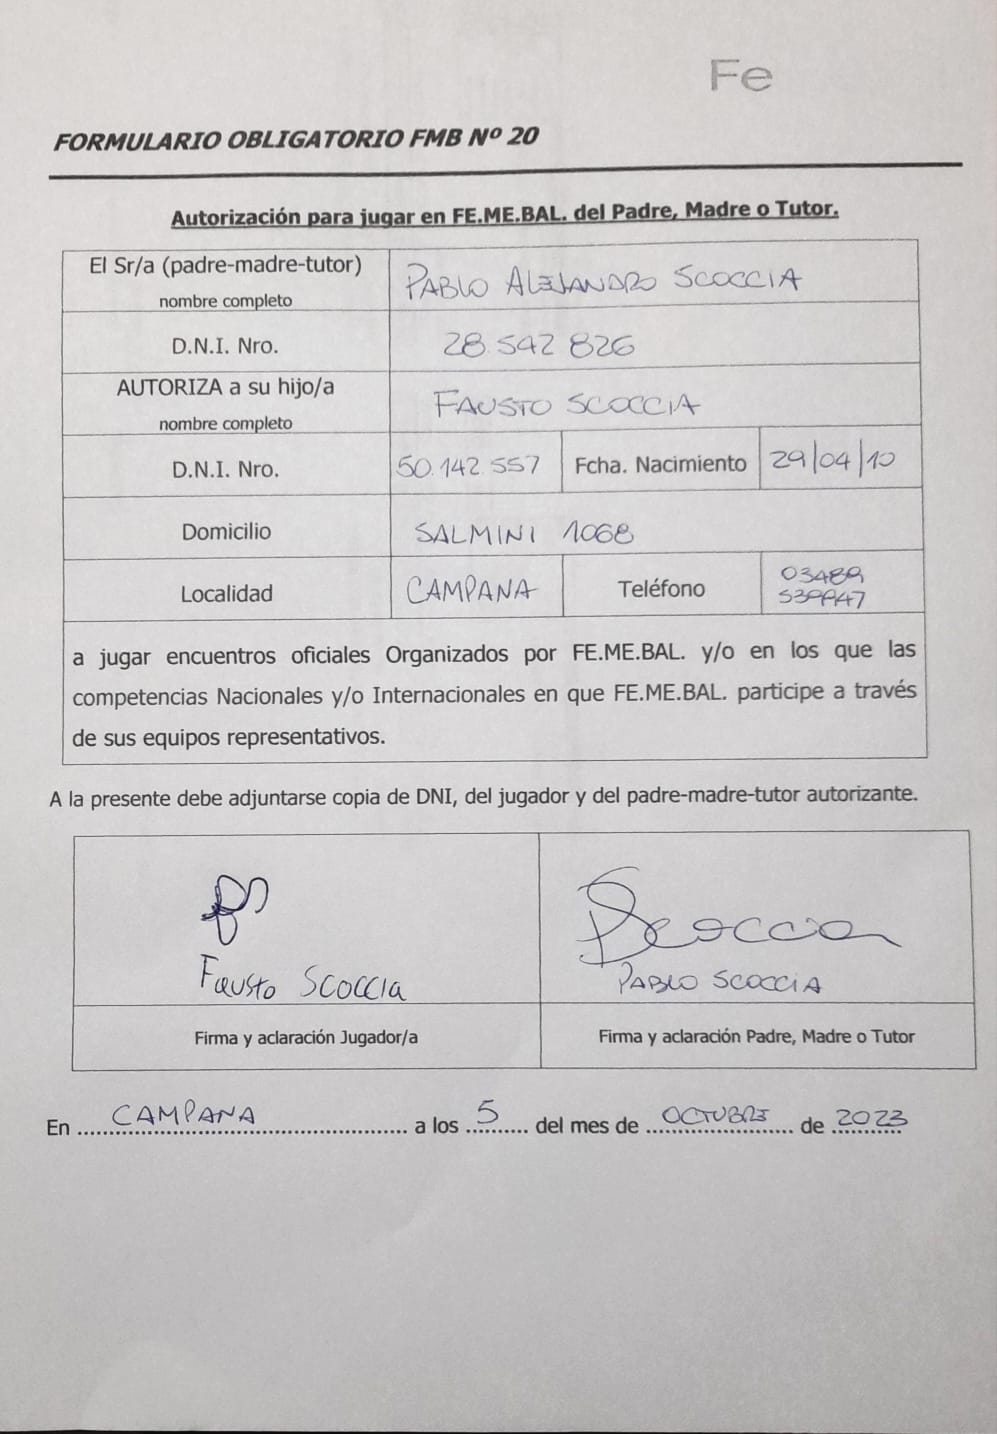 Fe
FORMULARIO OBLIGATORIO FMB Nº 20
Autorización para jugar en FE.ME.BAL. del Padre, Madre o Tutor.
El Sr/a (padre-madre-tutor)
nombre completo
PABLO ALEJANDRO SCOCCIA
D.N.I. Nro.
28.542 826
AUTORIZA a su hijo/a
nombre completo
FAUSTO SCOCCIA
D.N.I. Nro.
50.142.557
Fcha. Nacimiento
29/04/10
Domicilio
SALMINI 1068
Localidad
CAMPANA
Teléfono
03489
a jugar encuentros oficiales Organizados por FE.ME.BAL. y/o en los que las
competencias Nacionales y/o Internacionales en que FE.ME.BAL. participe a través
de sus equipos representativos.
A la presente debe adjuntarse copia de DNI, del jugador y del padre-madre-tutor autorizante.
Fausto Scoccia
Scoccia
PABLO SCOCCIA
Firma y aclaración Jugador/a
Firma y aclaración Padre, Madre o Tutor
En CAMPANA a los 5 del mes de OCTUBRE de 2023